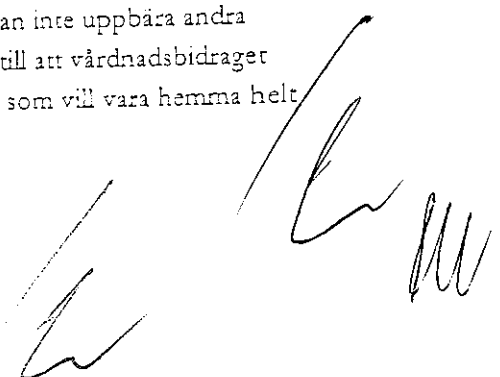 an inte uppbära andra
till att vårdnadsbidraget
som vill vara hemma helt